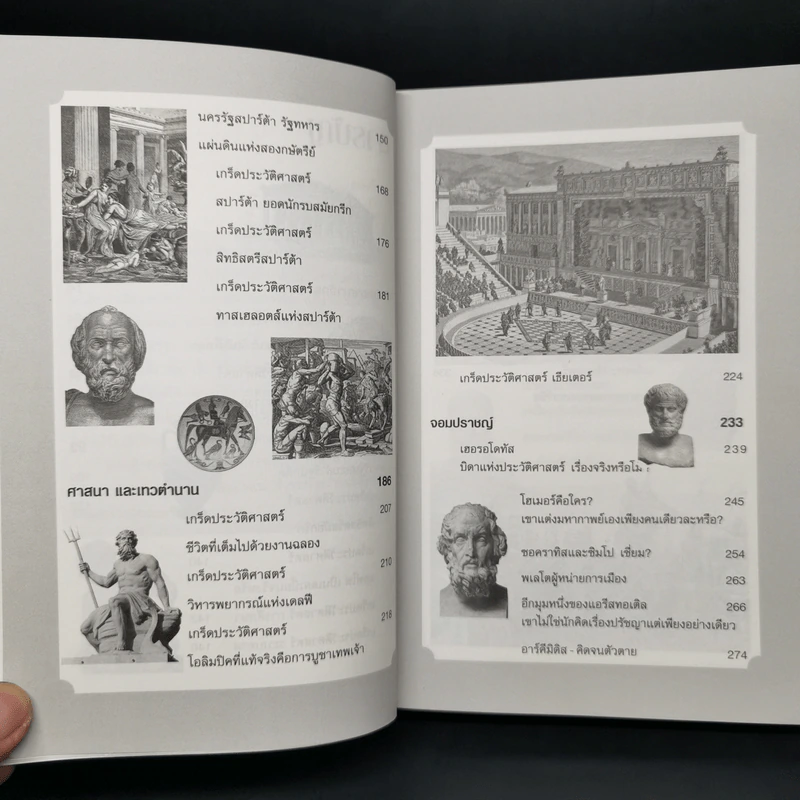 นครรัฐสปาร์ต้า รัฐทหาร 150
แผ่นดินแห่งสองกษัตรีย์
เกร็ดประวัติศาสตร์ 168
สปาร์ต้า ยอดนักรบสมัยกรีก
เกร็ดประวัติศาสตร์ 176
สิทธิสตรีสปาร์ต้า
เกร็ดประวัติศาสตร์ 181
ทาสเฮลอตส์แห่งสปาร์ต้า
ศาสนา และเทวตำนาน 186
เกร็ดประวัติศาสตร์ 207
ชีวิตที่เต็มไปด้วยงานฉลอง
เกร็ดประวัติศาสตร์ 210
วิหารพยากรณ์แห่งเดลฟี
เกร็ดประวัติศาสตร์ 218
โอลิมปิคที่แท้จริงคือการบูชาเทพเจ้า
เกร็ดประวัติศาสตร์ เธียเตอร์ 224
จอมปราชญ์ 233
เฮอรอโดทัส 239
บิดาแห่งประวัติศาสตร์ เรื่องจริงหรือ
โฮเมอร์คือใคร? 245
เขาแต่งมหากาพย์เองเพียงคนเดียวละหรือ?
ซอคราทิสและซิมโป เซี่ยม? 254
พเลโตผู้หน่ายการเมือง 263
อีกมุมหนึ่งของแอริสทอเติล 266
เขาไม่ใช่นักคิดเรื่องปรัชญาแต่เพียงอย่างเดียว
อาร์คีมิดิส - คิดจนตัวตาย 274